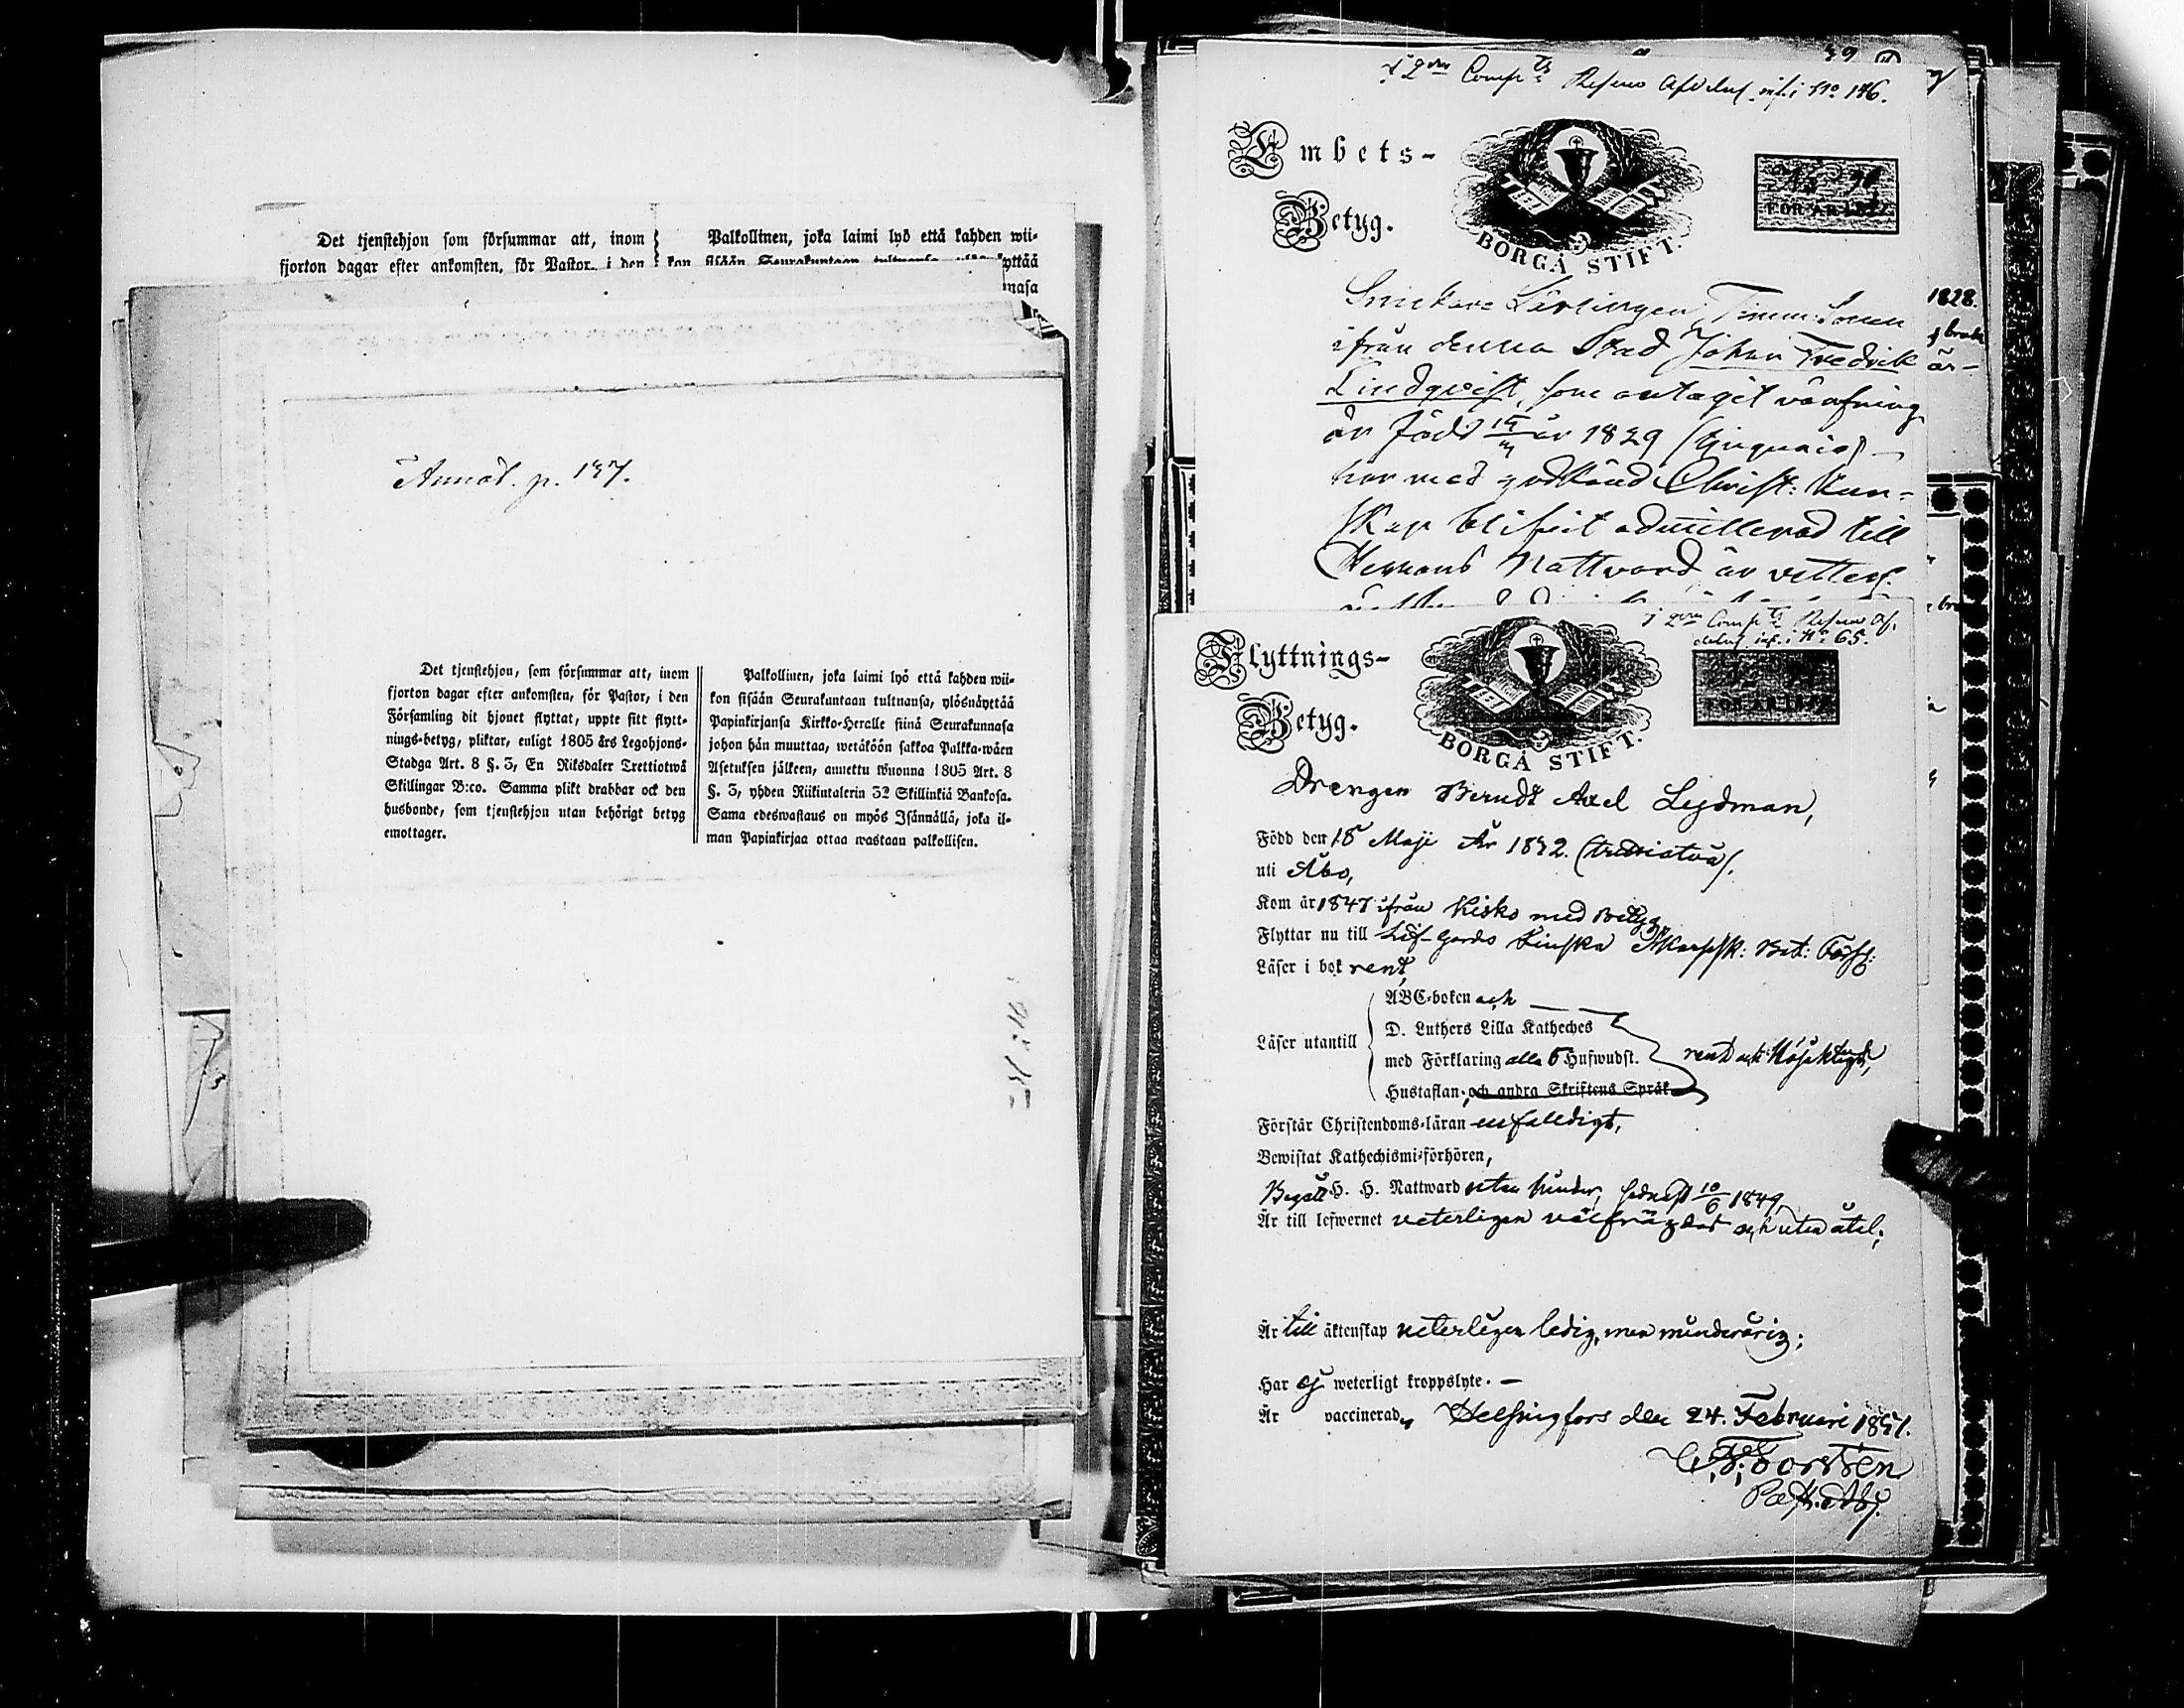 Det tjenstehjon som försummar att, inom
fjorton dagar efter ankomsten, för Pastor, i den
Palkollinen, joka laimi lyö että kahden wii-
kon sisään Seurakuntaan
Annot. p. 137.
Det tjenstehjon, som försummar att, inom
fjorton dagar efter ankomsten, för Pastor, i den
Församling dit hjonet flyttat, uppte sitt flytt-
nings-betyg, pliktar, enligt 1805 års Legohjons-
Stadga Art. 8 §. 3, En Riksdaler Trettiotwå
Skillingar B:co. Samma plikt drabbar ock den
husbonde, som tjenstehjon utan behörigt betyg
emottager.
Palkollinen, joka laimi lyö että kahden wii-
kon sisään Seurakuntaan tultuansa, ylösnäyttää
Papinkirjansa Kirkko-Heralle siinä Seurakunnasa
johon hän muuttaa, wetäköön sakkoa Palkka-wäen
Asetuksen jälkeen, annettu Wuonna 1805 Art. 8
§. 3, yhden Riikintalerin 32 Skillinkiä Bankosa.
Sama edeswastaus on myös Isännällä, joka il-
man Papinkirjaa ottaa wastaan palkollisen.
49
i 2dra Comp:s Reserv Afdeln. inf. i No 146.
Embets-
Betyg.
BORGÅ STIFT.
FÖR ÅR 1847.
Snickare Lärlingen, Timm. Sonen
ifrån denna Stad Johan Fredrik
Lindqvist, som antagit värfning
är född år 1829 (tjugunio) —
har med godkänd Christ: Kun-
skap blifvit admitterad till
Herrans Nattvard är vitterl.
1828.
är-
i 2dra Comp:s Reserv Af-
deln. inf. i No 65.
Flyttnings-
Betyg.
BORGÅ STIFT.
Drengen Berndt Axel Lejdman,
Född den 18 Maji År 1832. (trettiotvå).
uti Åbo,
Kom år 1847 ifrån Kisko med Betyg,
Flyttar nu till Lif-Gardes Finska Skarpsk: Bat: Förs:
Läser i bok rent,
Läser utantill
ABC-boken och
D. Luthers Lilla Katheches
med Förklaring alla 5 Hufwudst.
Hustaflan, och andra Skriftens Språk
rent och
Förstår Christendoms-läran enfalldigt,
Bewistat Kathechismi-förhören,
Begått H. H. Nattward utan hinder, sednast 10/6 1849,
Är till lefwernet veterligen välfrägdad och utan åtal;
Är till äktenskap veterligen ledig, men minderårig;
Har ej weterligt kroppslyte. —
Är vaccinerad, Helsingfors den 24. Februari 1851.
C. F. Forstén
Past. Adj.